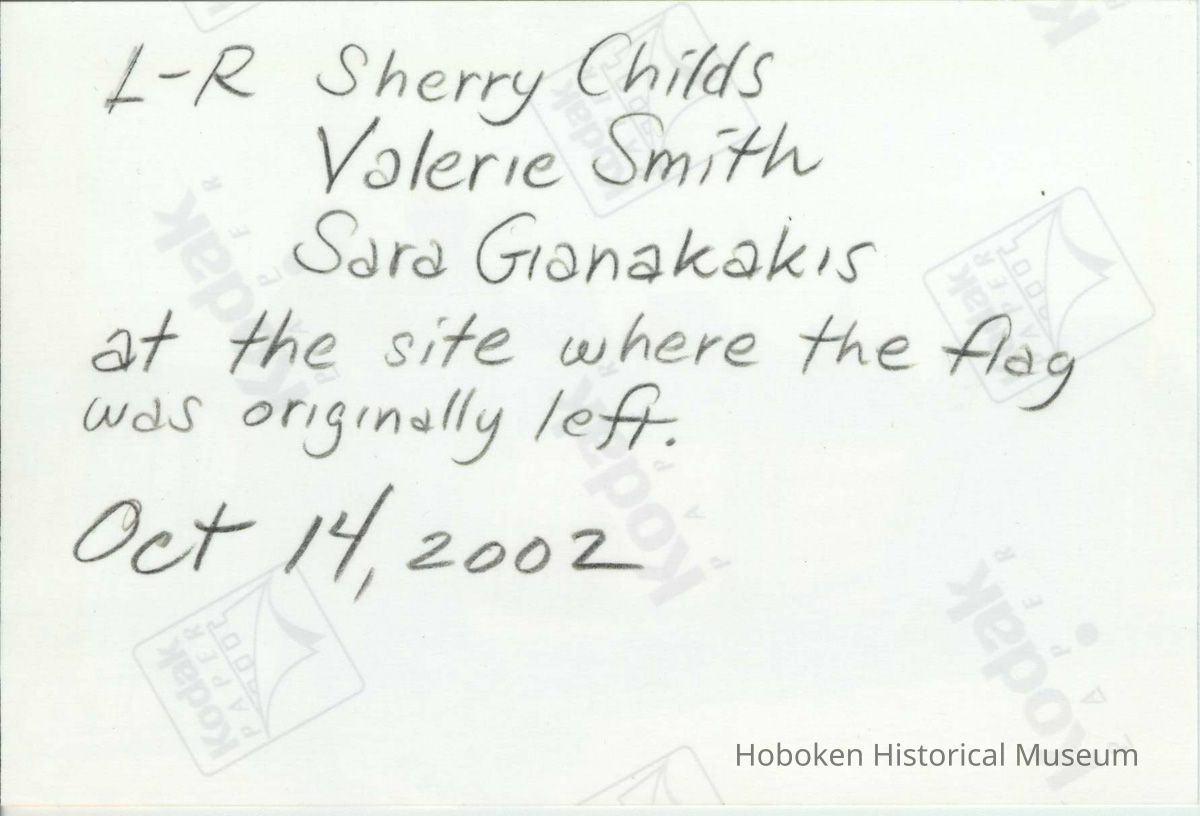 L-R Sherry Childs
Valerie Smith
Sara Gianakakis
at the site where the flag
was originally left.
Oct 14, 2002
Kodak
PAPER
Kodak
PAPER
Kodak
PAPER
Kodak
PAPER
Kodak
PAPER
Kodak
PAPER
Hoboken Historical Museum